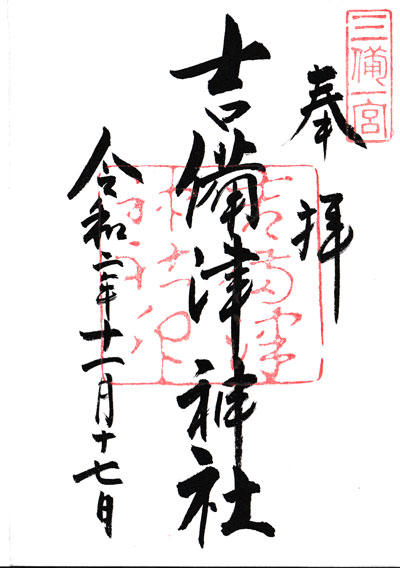 三備一宮
奉拝
吉備津神社
令和二年十一月十七日